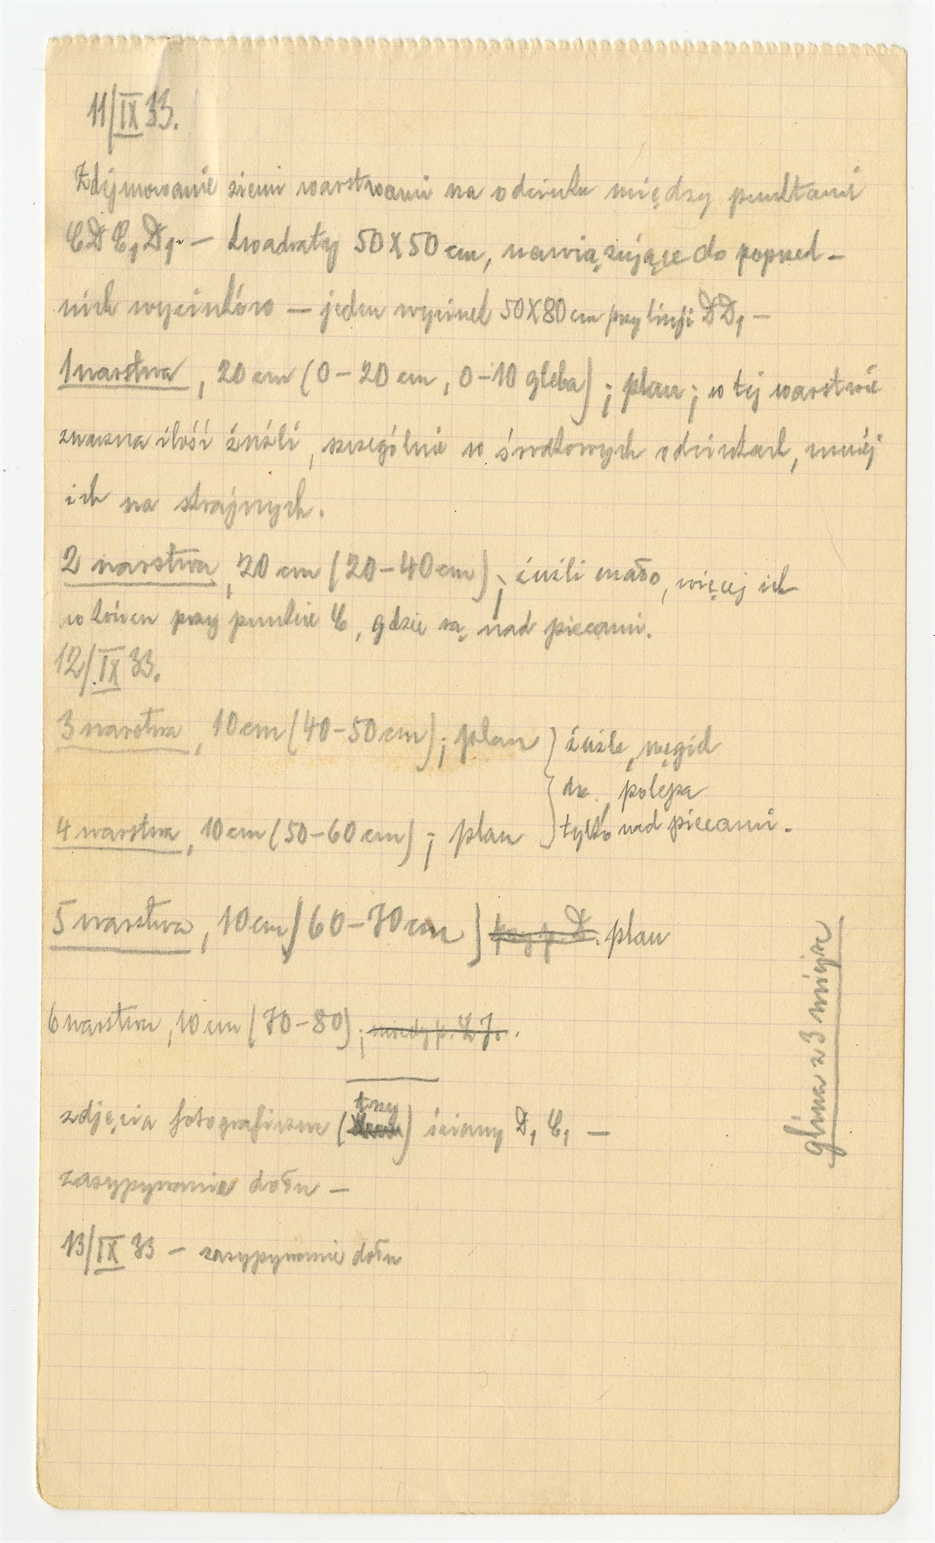 11/IX 33.
Zdejmowanie ziemi warstwami na odcinku między punktami
C D C₁ D₁ – kwadraty 50X50 cm, nawiązujące do poprzed-
nich wycinków – jeden wycinek 50X80 cm przy linji D D₁ –
1 warstwa, 20 cm (0–20 cm, 0–10 gleba); plan; w tej warstwie
znaczna ilość żużli, szczególnie w środkowych odcinkach, mniej
ich na skrajnych.
2 warstwa, 20 cm (20–40 cm); żużli mało, więcej ich
w końcu przy punkcie C, gdzie są nad piecami.
12/IX 33.
3 warstwa, 10 cm (40–50 cm); plan } żużle, węgiel
drz. polepa
4 warstwa, 10 cm (50–60 cm); plan } tylko nad piecami.
5 warstwa, 10 cm (60–70 cm) przy p. D. plan
6 warstwa, 10 cm (70–80);
zdjęcia fotograficzne (trzy) ściany D₁ C₁ –
zasypywanie dołu –
13/IX 33 – zasypywanie dołu
glina z 3 miejsc